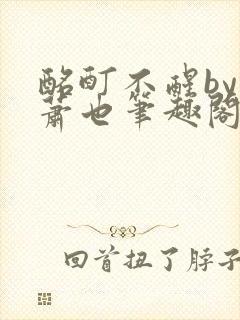 酩酊不醒by
蕭也筆趣閣
回首扭了脖子